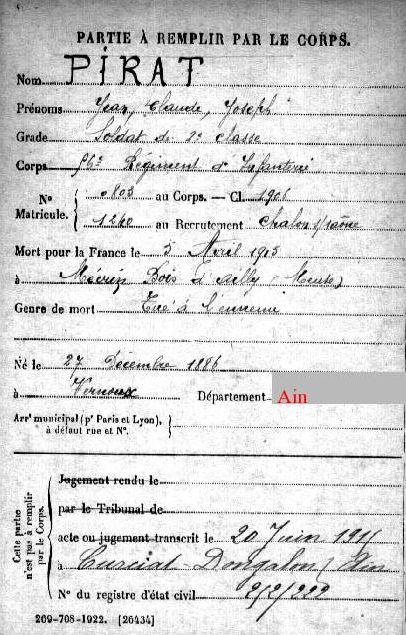 PARTIE À REMPLIR PAR LE CORPS.
Nom PIRAT
Prénoms Jean, Claude, Joseph
Grade Soldat de 2e classe
Corps 56e Régiment d'Infanterie
No Matricule. { 0803 au Corps. — Cl. 1906
1240 au Recrutement Chalon s/saône
Mort pour la France le 5 Avril 1915
à Bois d'Ailly (Meuse)
Genre de mort Tué à l'ennemi
Né le 27 Decembre 1886
à Vernoux Département Ain
Arrt municipal (pr Paris et Lyon), à défaut rue et No.
Cette partie n'est pas à remplir par le Corps.
Jugement rendu le
par le Tribunal de
acte ou jugement transcrit le 20 Juin 1917
à Curciat Dongalon, Ain
No du registre d'état civil
269-708-1922. [26434]